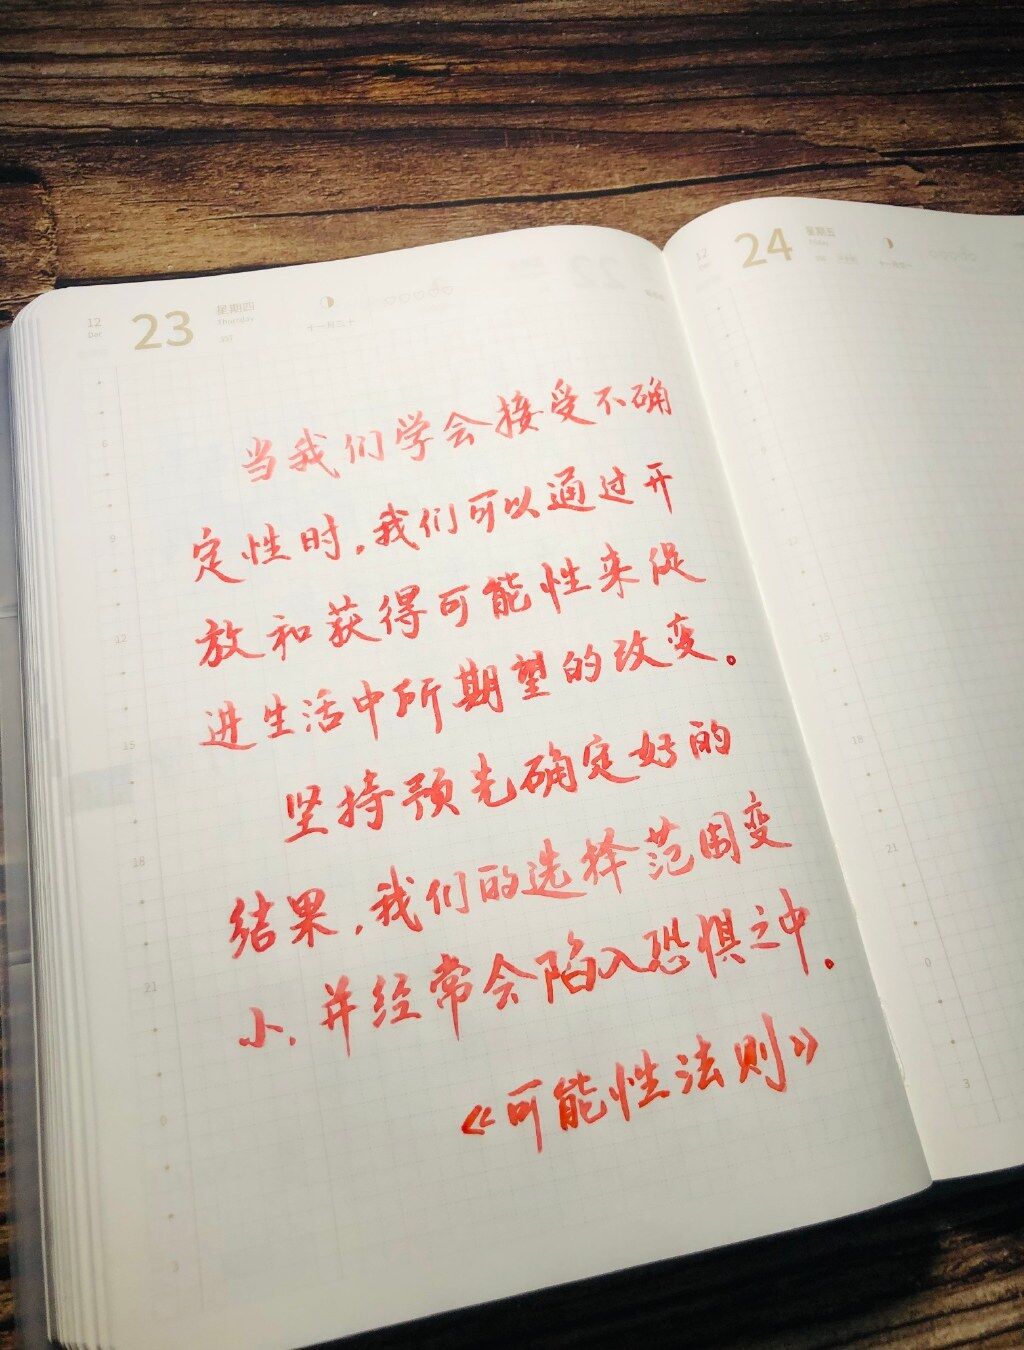 12
Dec
23
星期四
Thursday
357
十二月一十
当我们学会接受不确
定性时,我们可以通过开
放和获得可能性来促
进生活中所期望的改变。
坚持预先确定好的
结果,我们的选择范围变
小,并经常会陷入恐惧之中.
《可能性法则》
6
9
12
15
18
21
0
3
12
24
星期五
Friday
6
9
12
15
18
21
0
3